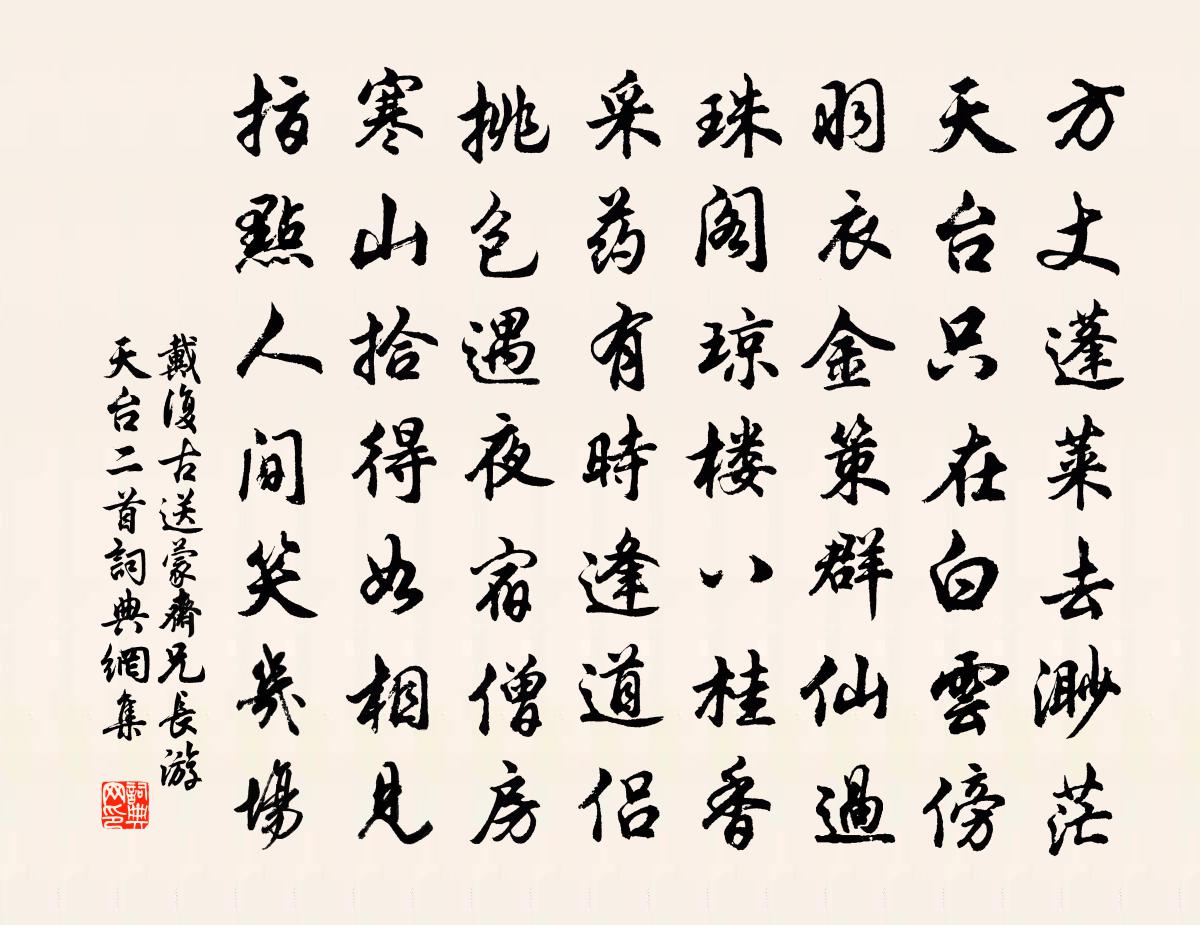 方丈蓬莱去渺茫
天台只在白雲傍
羽衣金策群仙過
珠阁琼楼八桂香
采药有時逢道侣
挑包遇夜宿僧房
寒山拾得如相見
指點人间笑幾場
戴復古送蒙齋兄長游
天台二首詞典網集
詞典
网印